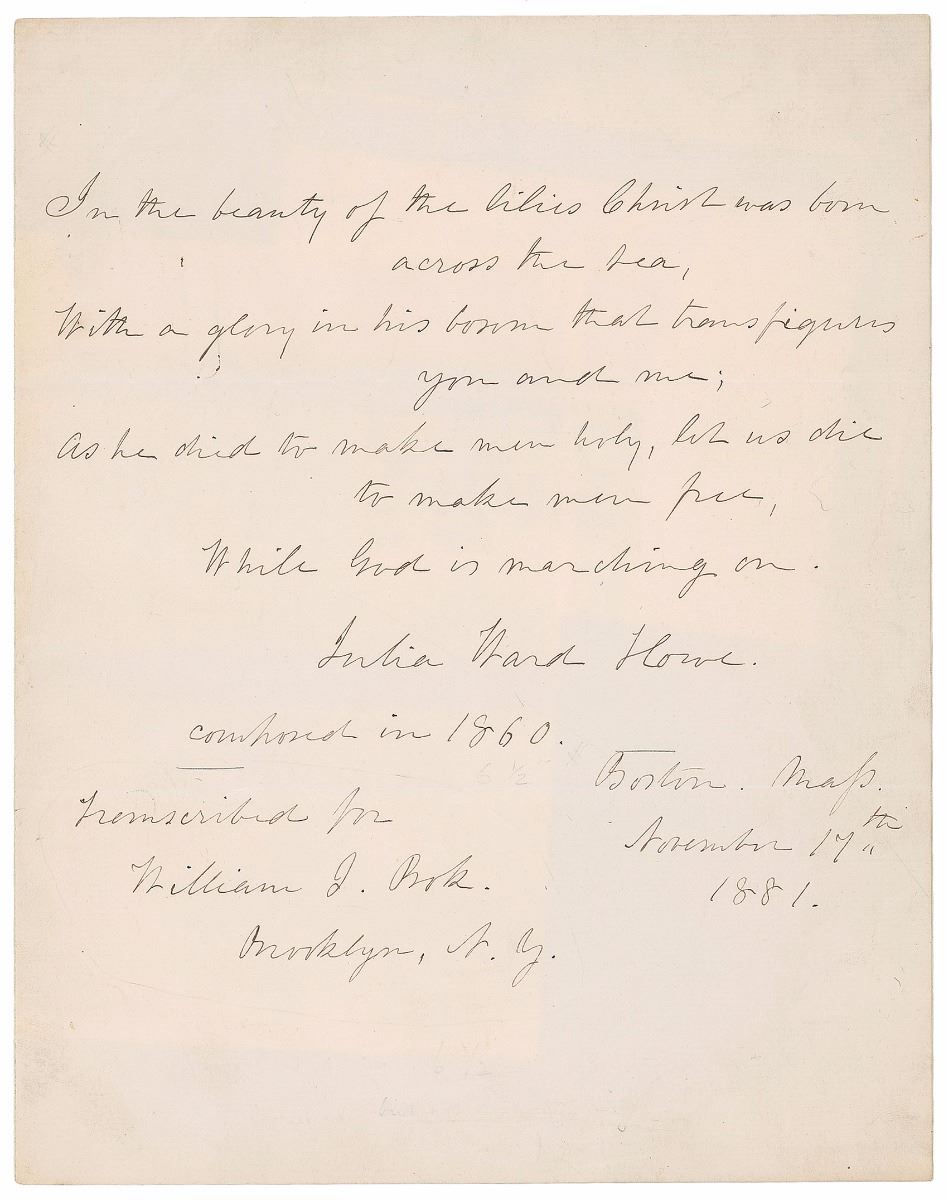 In the beauty of the lilies Christ was born
across the sea,
With a glory in his bosom that transfigures
you and me;
As he died to make men holy, let us die
to make men free,
While God is marching on.
Julia Ward Howe.
composed in 1860.
Boston. Mass.
November 17th
1881.
Transcribed for
William J. Bok.
Brooklyn, N. Y.
6 ½
6 ½